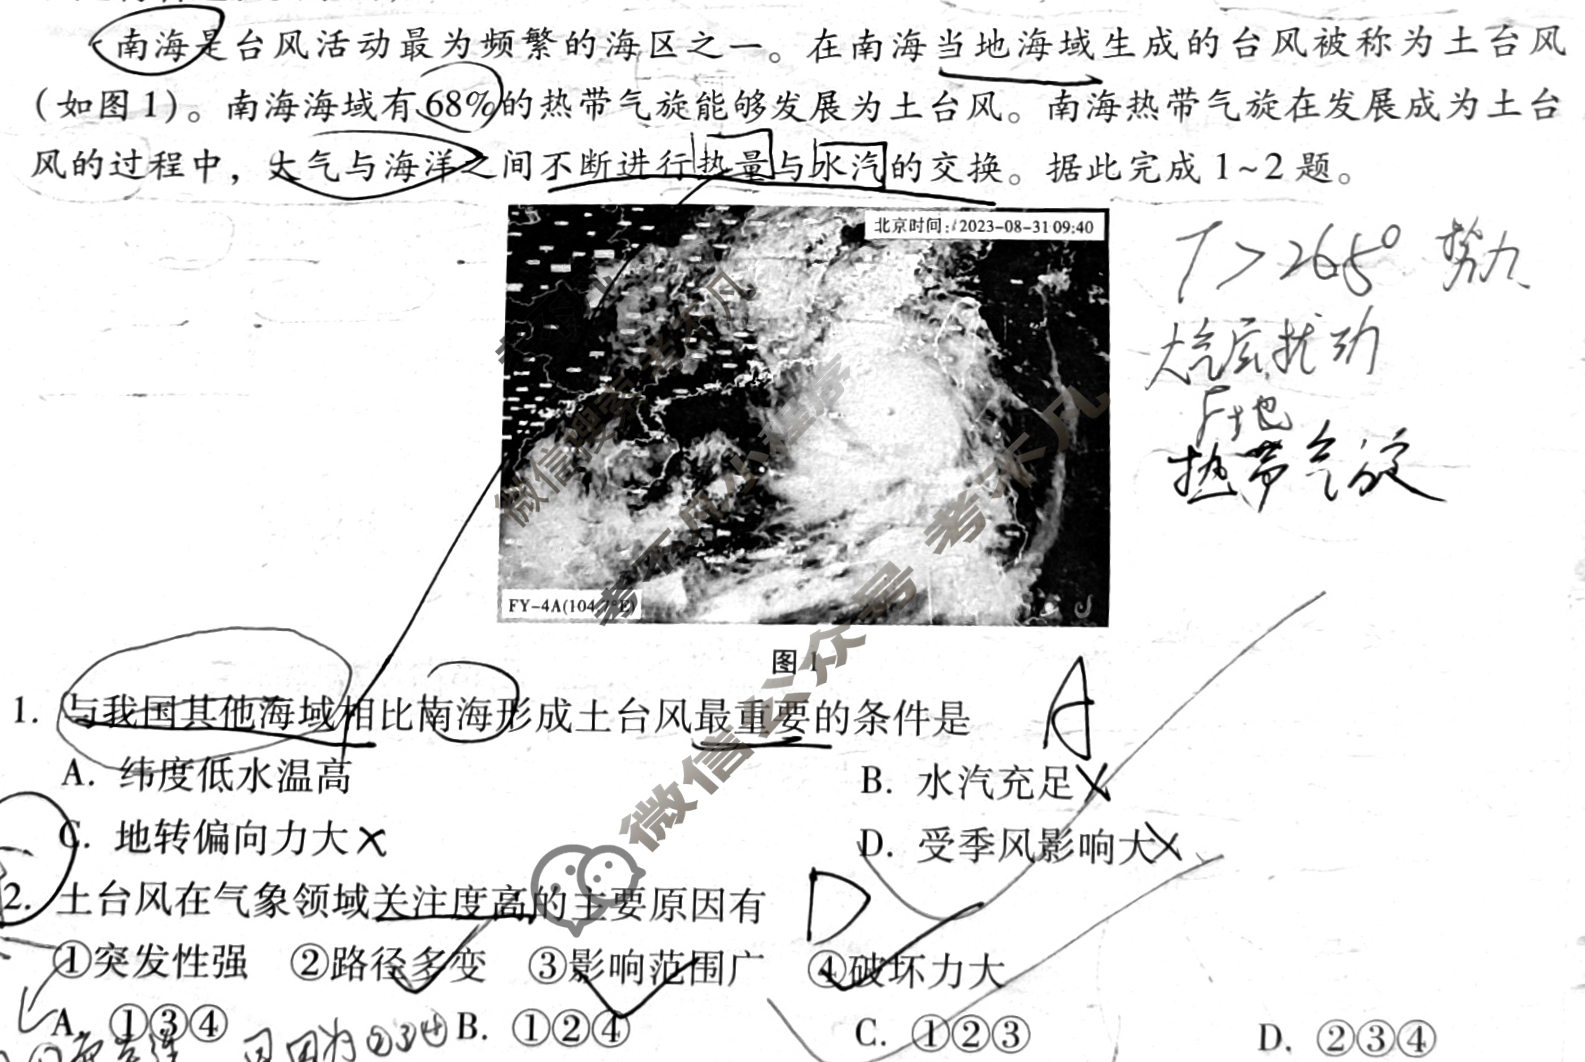 南海是台风活动最为频繁的海区之一。在南海当地海域生成的台风被称为土台风
（如图1）。南海海域有68%的热带气旋能够发展为土台风。南海热带气旋在发展成为土台
风的过程中，大气与海洋之间不断进行热量与水汽的交换。据此完成1~2题。
北京时间：2023-08-31 09:40
T＞26.5° 势力
大气层扰动
F地
热带气旋
FY-4A(104.7°E)
图1
1. 与我国其他海域相比南海形成土台风最重要的条件是 A
A. 纬度低水温高 B. 水汽充足
C. 地转偏向力大 D. 受季风影响大
2. 土台风在气象领域关注度高的主要原因有 D
①突发性强 ②路径多变 ③影响范围广 ④破坏力大
A. ①③④ B. ①②④ C. ①②③ D. ②③④
因为②③④
微信公众号